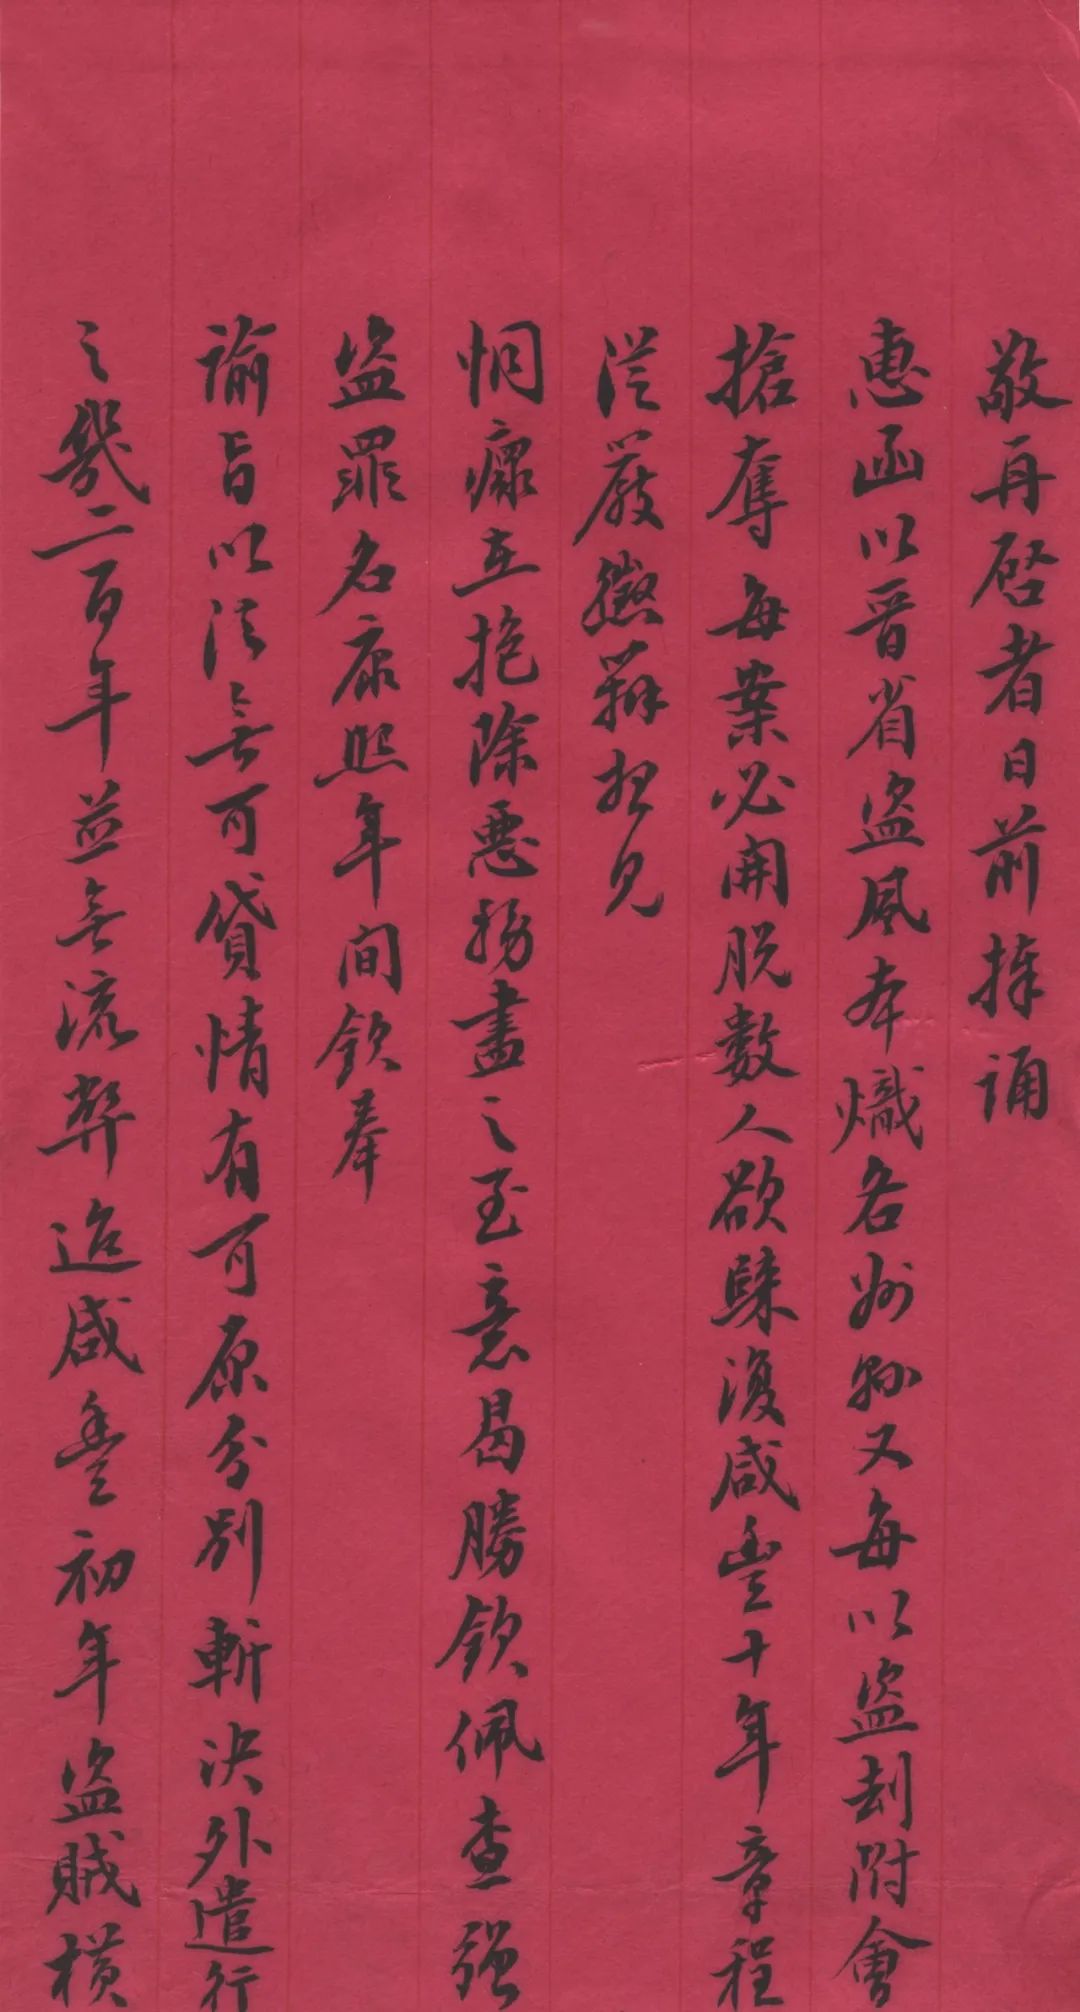 敬再啓者日前捧誦
惠函以晋省盗風本熾各州縣又每以盗刦附會
搶奪每案必開脱數人欲隸復咸豐十年章程
從嚴懲辦想見
恫瘝在抱除惡務盡之至意曷勝欽佩查强
盗罪名康熙年間欽奉
諭旨以法無可貸情有可原分别斬決外遣行
之幾二百年並無流弊迨咸豐初年盗賊横